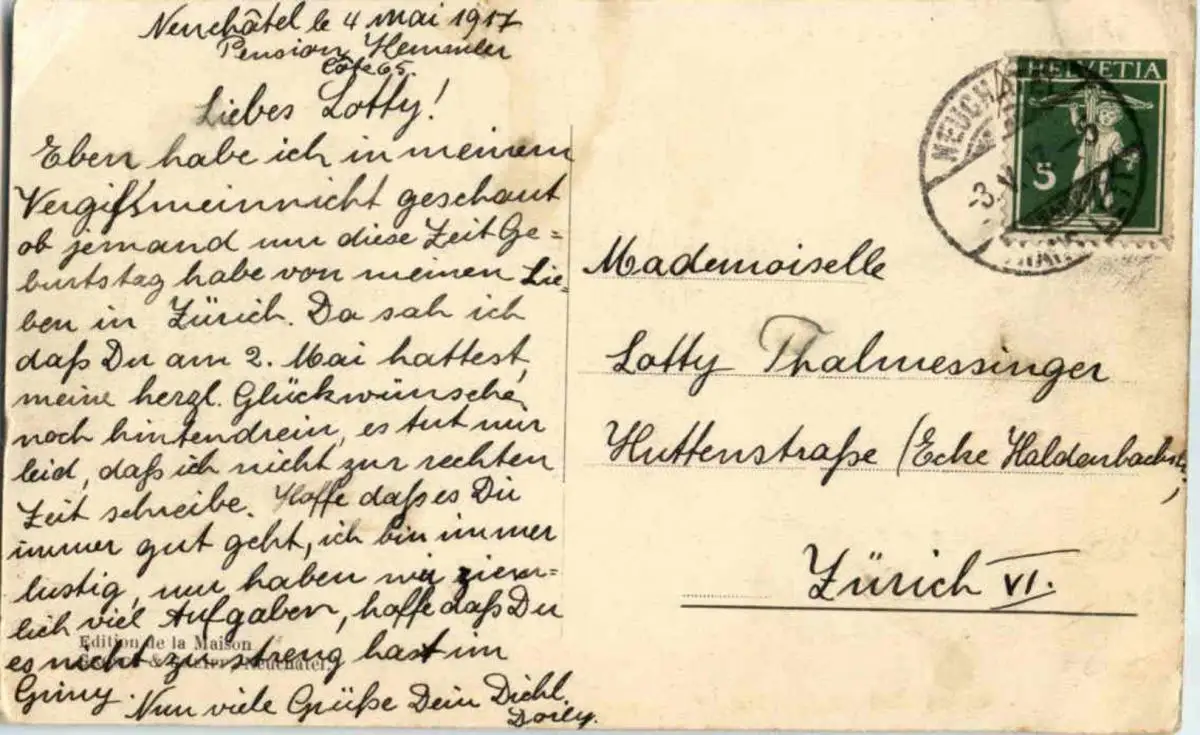 Neuchâtel le 4 Mai 1917
Pension Hemmeler
Côte 65.
Liebes Lotty!
Eben habe ich in meinem
Vergissmeinnicht geschaut
ob jemand um diese Zeit Ge=
burtstag habe von meinen Lie=
ben in Zürich. Da sah ich
daß Du am 2. Mai hattest,
meine herzl. Glückwünsche
noch hintendrein, es tut mir
leid, daß ich nicht zur rechten
Zeit schreibe. Hoffe daß es Dir
immer gut geht, ich bin immer
lustig, nur haben wir ziem=
lich viel Aufgaben, hoffe daß Du
es nicht zu streng hast im
Nun viele Grüße Dein Dichl.
Edition de la Maison
Neuchâtel.
HELVETIA
5
NEUCHÂTEL
Mademoiselle
Lotty Thalmessinger
Huttenstraße (Ecke Haldenbachstr.,
Zürich VI.